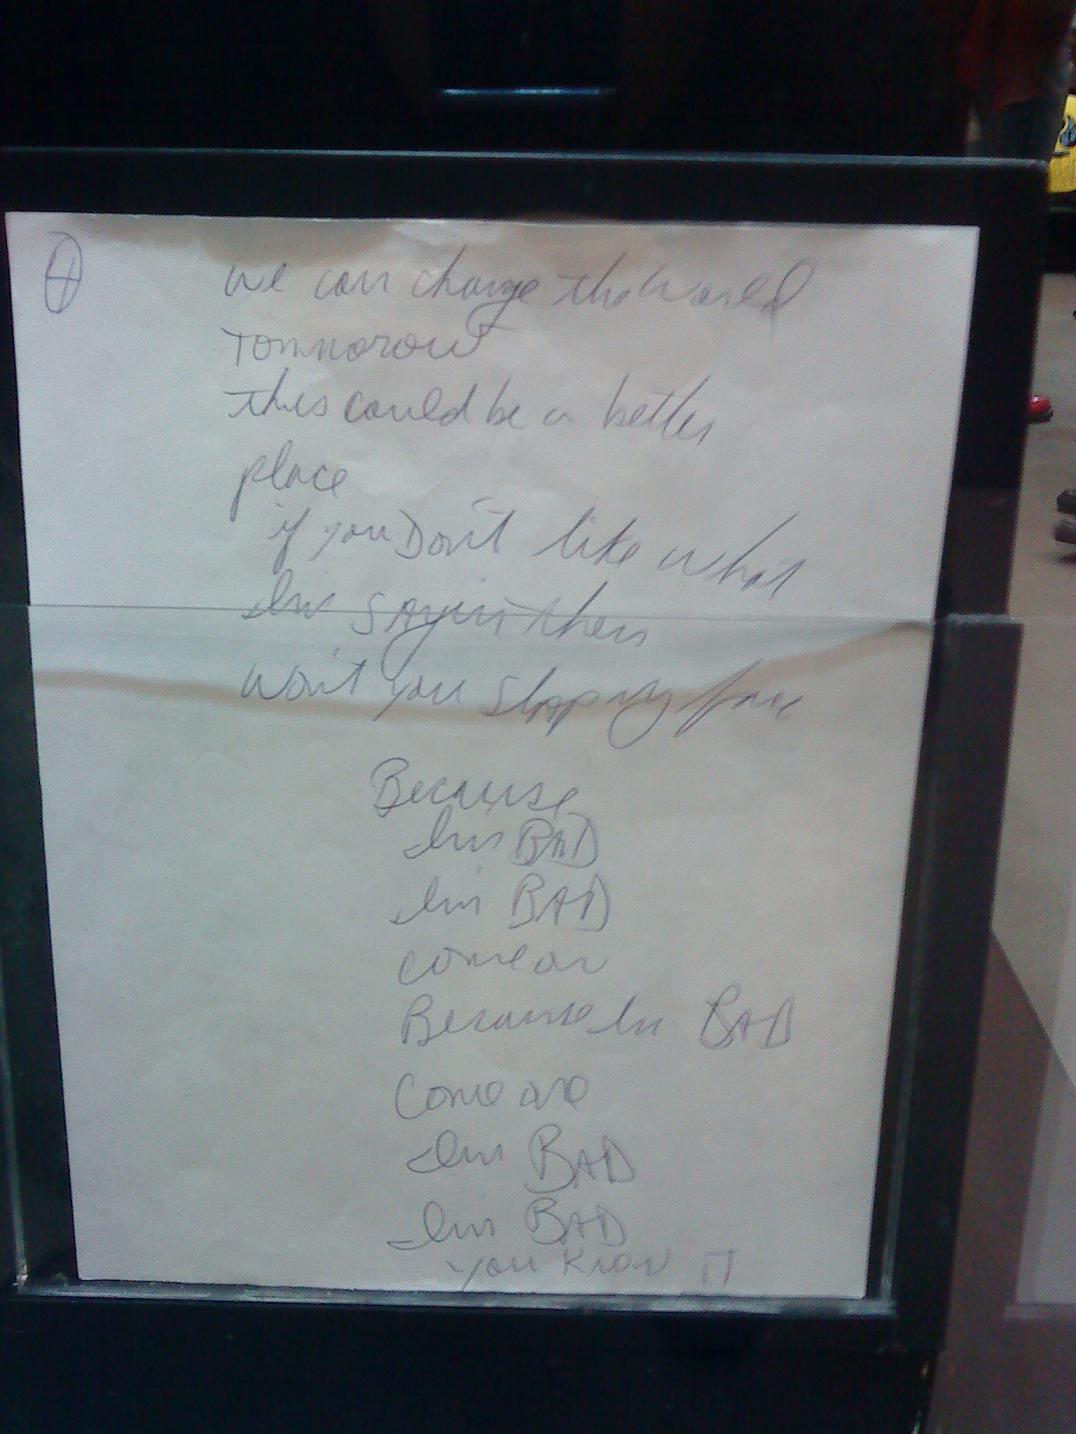 4
we can change the world
Tommorow
this could be a better
place
if you Don't like what
Im SAyin then
Won't you SlAp my face
Because
Im BAD
Im BAD
come on
Because Im BAD
Come one
Im BAD
Im BAD
you Know IT